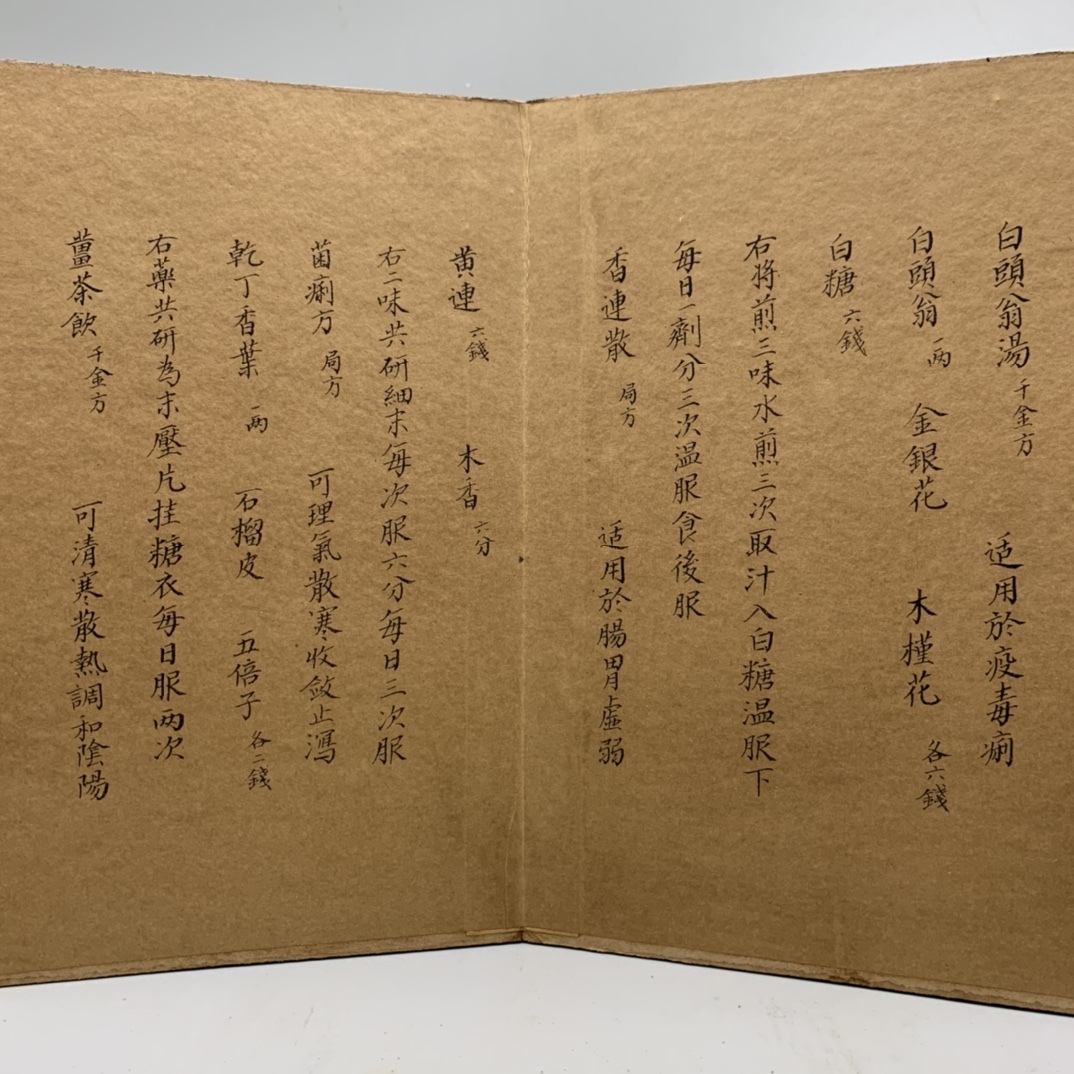 白頭翁湯 千金方 适用於疫毒痢
白頭翁 一两 金銀花 木槿花 各六錢
白糖 六錢
右將煎三味水煎三次取汁入白糖温服下
每日一劑分三次温服食後服
香連散 局方 适用於腸胃虛弱
黄連 六錢 木香 六分
右二味共研細末每次服六分每日三次服
菌痢方 局方 可理氣散寒收斂止瀉
乾丁香葉 一两 石榴皮 五倍子 各二錢
右藥共研為末壓片挂糖衣每日服两次
薑茶飲 千金方 可清寒散熱調和陰陽